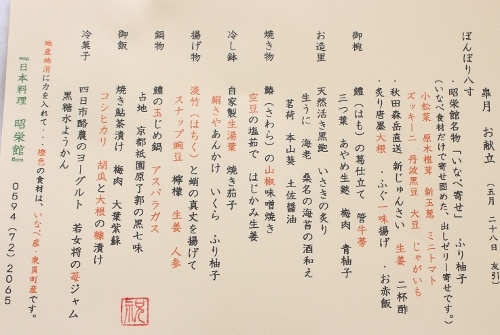 皐月　お献立　（五月二十八日　友引）
ぼんぼり八寸
・昭栄館名物「いなべ寄せ」　ふり柚子
（いなべ食材だけで寄せ固めた、出しゼリー寄せです。）
小松菜　原木椎茸　新玉葱　ミニトマト
ズッキーニ　丹波黒豆　大豆　じゃがいも
・秋田森岳直送　新じゅんさい　生姜　二杯酢
・炙り唐墨大根　・ふぐ一味揚げ　・お赤飯
御椀　鱧（はも）の葛仕立て　管牛蒡
三つ葉　あやめ生麩　梅肉　青柚子
お造里　天然活き黒鮑　いさきの炙り
生うに　海老　桑名の海苔の酒和え
茗荷　本山葵　土佐醤油
焼き物　鰆（さわら）の山椒味噌焼き
空豆の塩茹で　はじかみ生姜
冷し鉢　自家製生湯葉　焼き茄子
絹さやあんかけ　いくら　ふり柚子
揚げ物　淡竹（はちく）と蛸の真丈を揚げて
スナップ豌豆　檸檬　生姜　人参
鍋物　鱧の玉じめ鍋　アスパラガス
占地　京都祇園原了郭の黒七味
御飯　焼き鮎茶漬け　梅肉　大葉紫蘇
コシヒカリ　胡瓜と大根の糠漬け
冷菓子　四日市酪農のヨーグルト　若女将の苺ジャム
黒糖水ようかん
地産地消に力を入れて・・橙色の食材は、いなべ産・東員町産です。
『日本料理　昭栄館』　0594（72）2065
祝